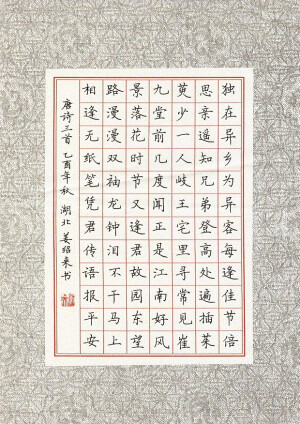 独在异乡为异客每逢佳节倍
思亲遥知兄弟登高处遍插茱
萸少一人岐王宅里寻常见崔
九堂前几度闻正是江南好风
景落花时节又逢君故园东望
路漫漫双袖龙钟泪不干马上
相逢无纸笔凭君传语报平安
唐诗三首 乙酉年秋 湖北 姜绍来书